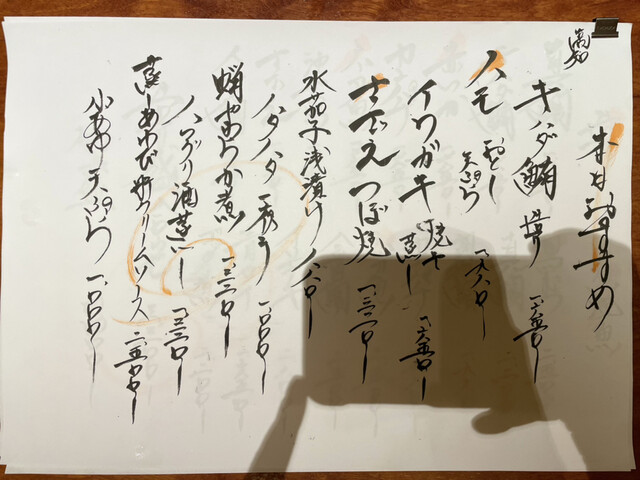 本日おすすめ
高知
キハダ鮪 造り 一、一五〇ー
ハモ おとし 天ぷら 一、六八〇ー
イワガキ 焼き 蒸し 一、六五〇ー
サザエつぼ焼 一、三二〇ー
水茄子浅漬け 八八〇ー
ハタハタ 一夜干 一、〇〇〇ー
蛸やわらか煮 一、三二〇ー
ハマグリ酒蒸し 一、三二〇ー
蒸しあわび 肝クリームソース 二、五〇〇ー
小あゆ 天ぷら 一、〇〇〇ー